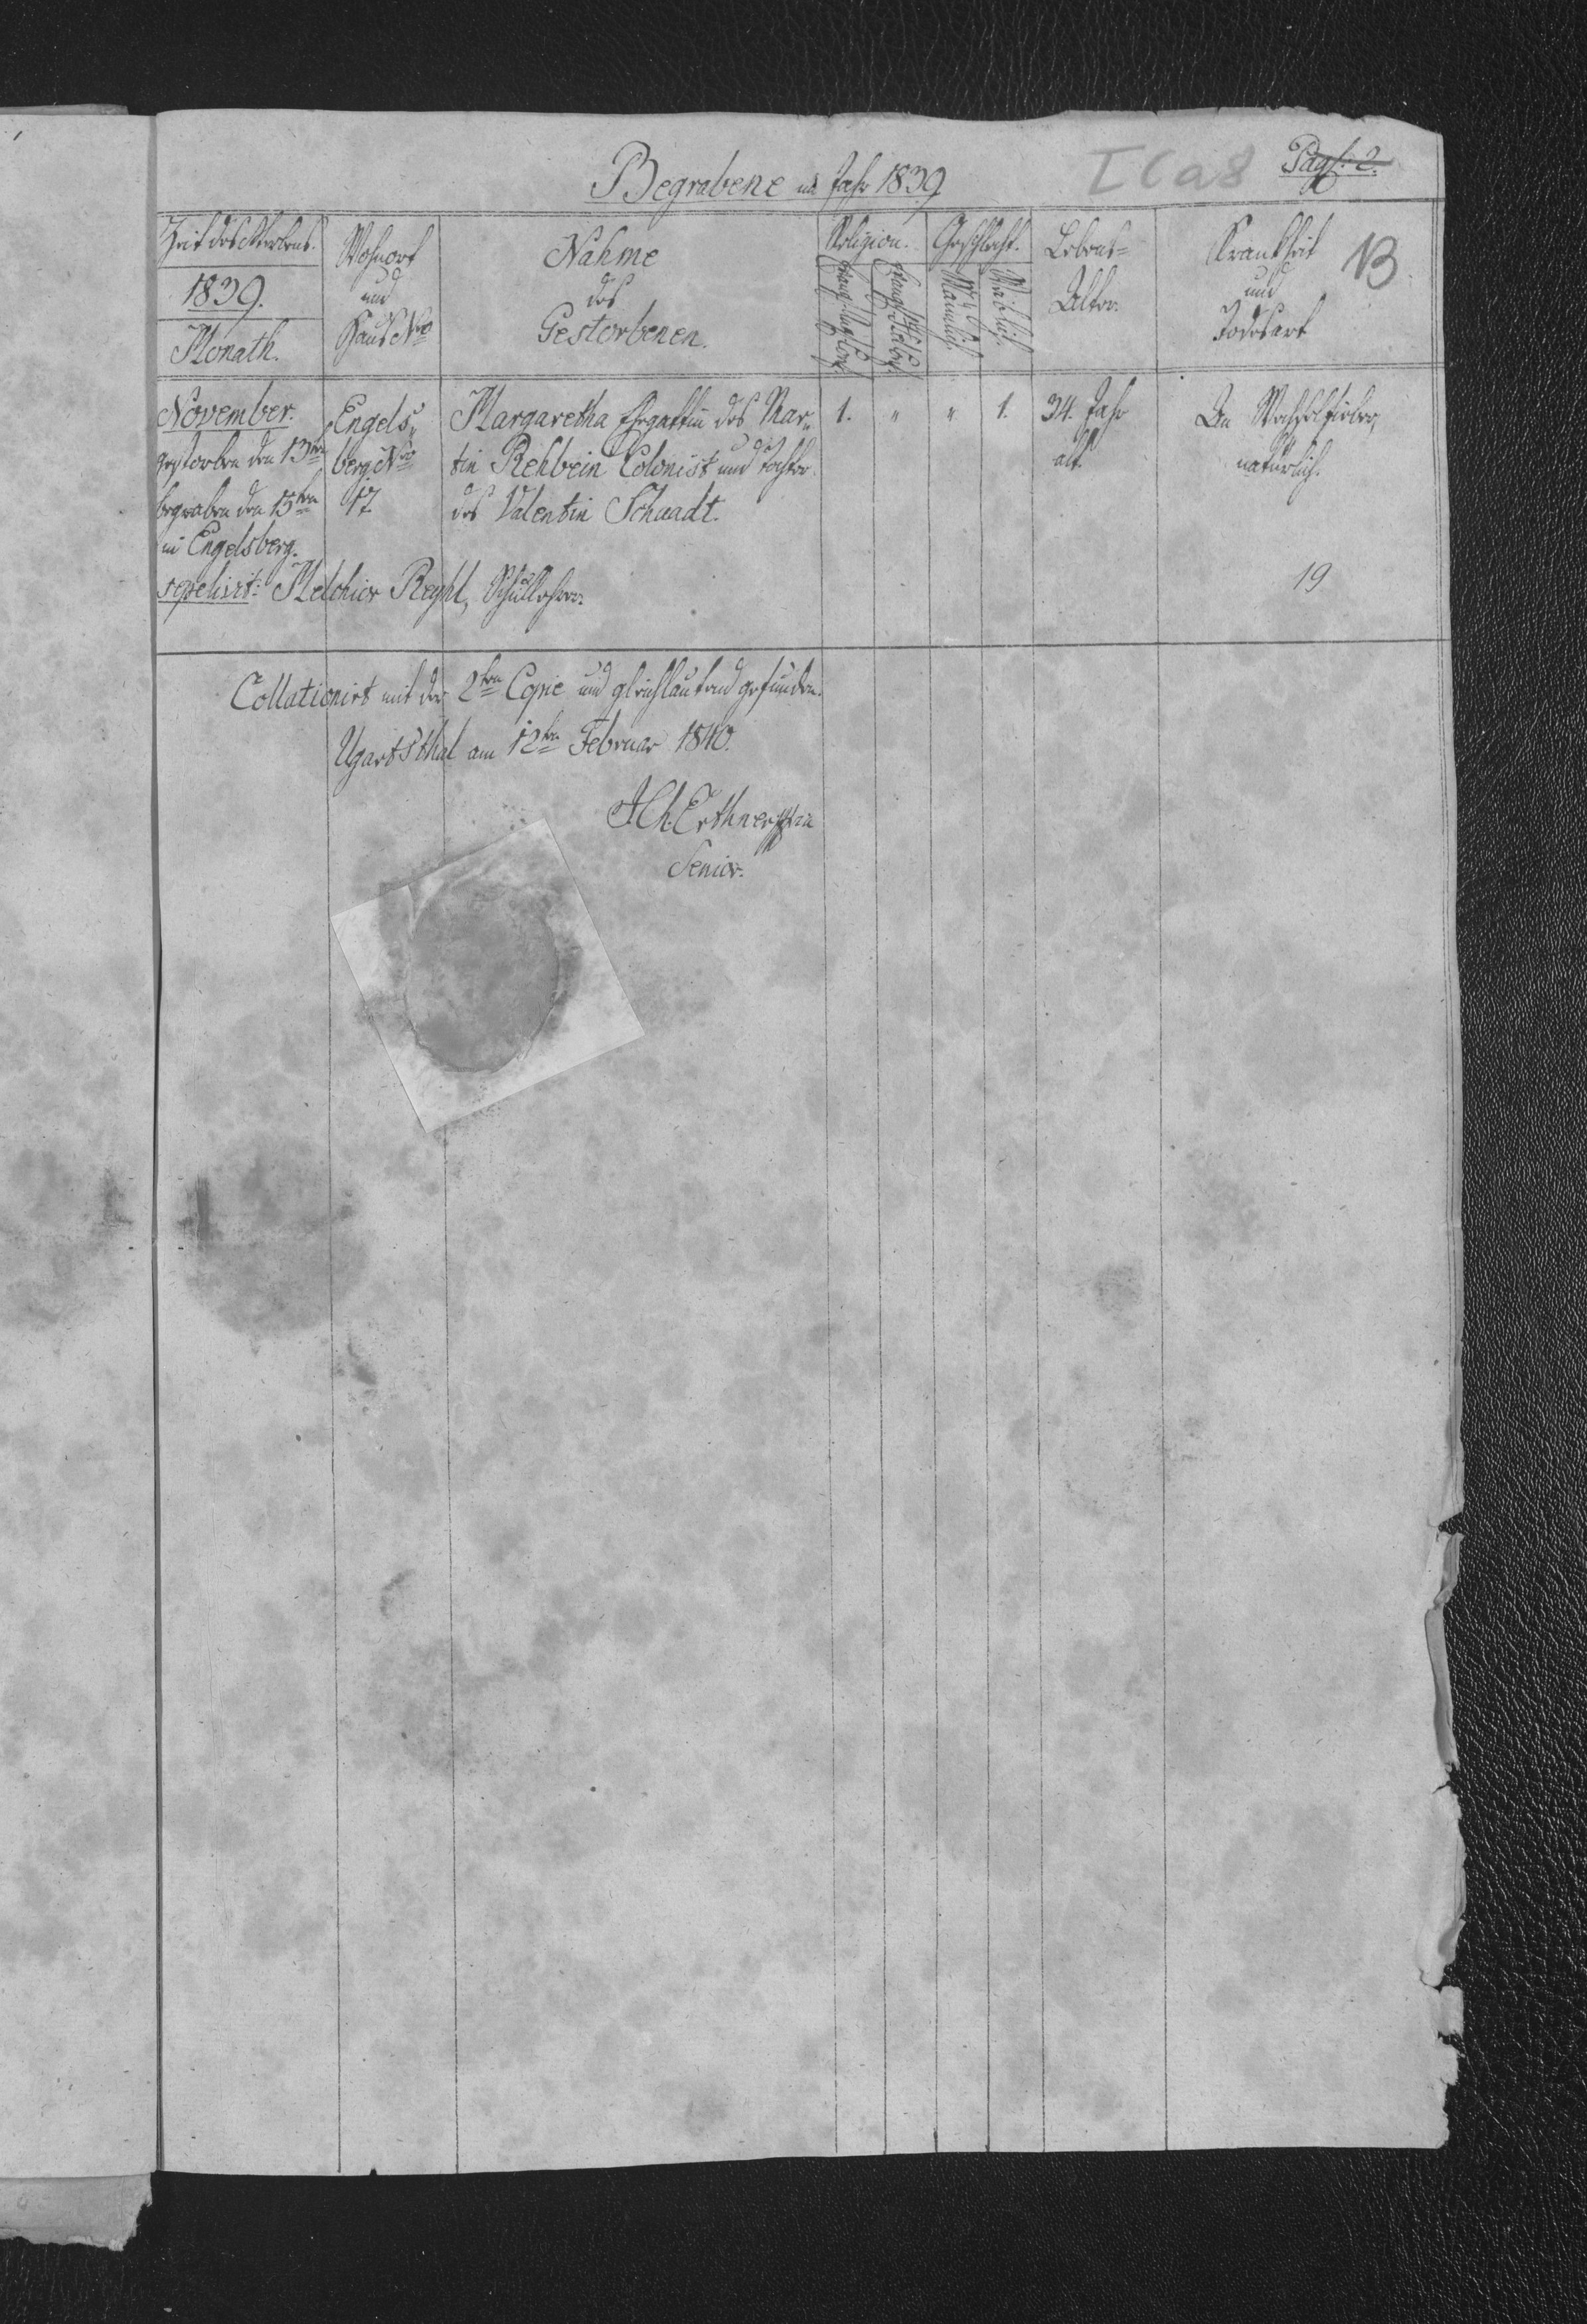 Begrabene im Jahr 1839
I C a 8
Pag: 2.
13
Zeit des Sterbens.
1839.
Monath.
Wohnort
und
Haus Nro
Nahme
des
Gestorbenen.
Religion.
Geschlecht.
Männlich
Weiblich.
Lebens=
Alter.
Krankheit
und
Todesart
November.
gestorben den 13ten
begraben den 15ten
in Engelsberg.
Engels„
berg Nro
17
Margaretha Ehegattin des Mar„
tin Rehbein Colonist und Tochter
des Valentin Schaadt.
1. „ „ 1.
34. Jahr
alt.
An Wechselfieber,
natürlich.
sepelirt: Melchior Reyhl, Schullehrer.
19
Collationirt mit der 2ten Copie und gleichlautend gefunden.
Ugartsthal am 12ten Februar 1840.
Senior.